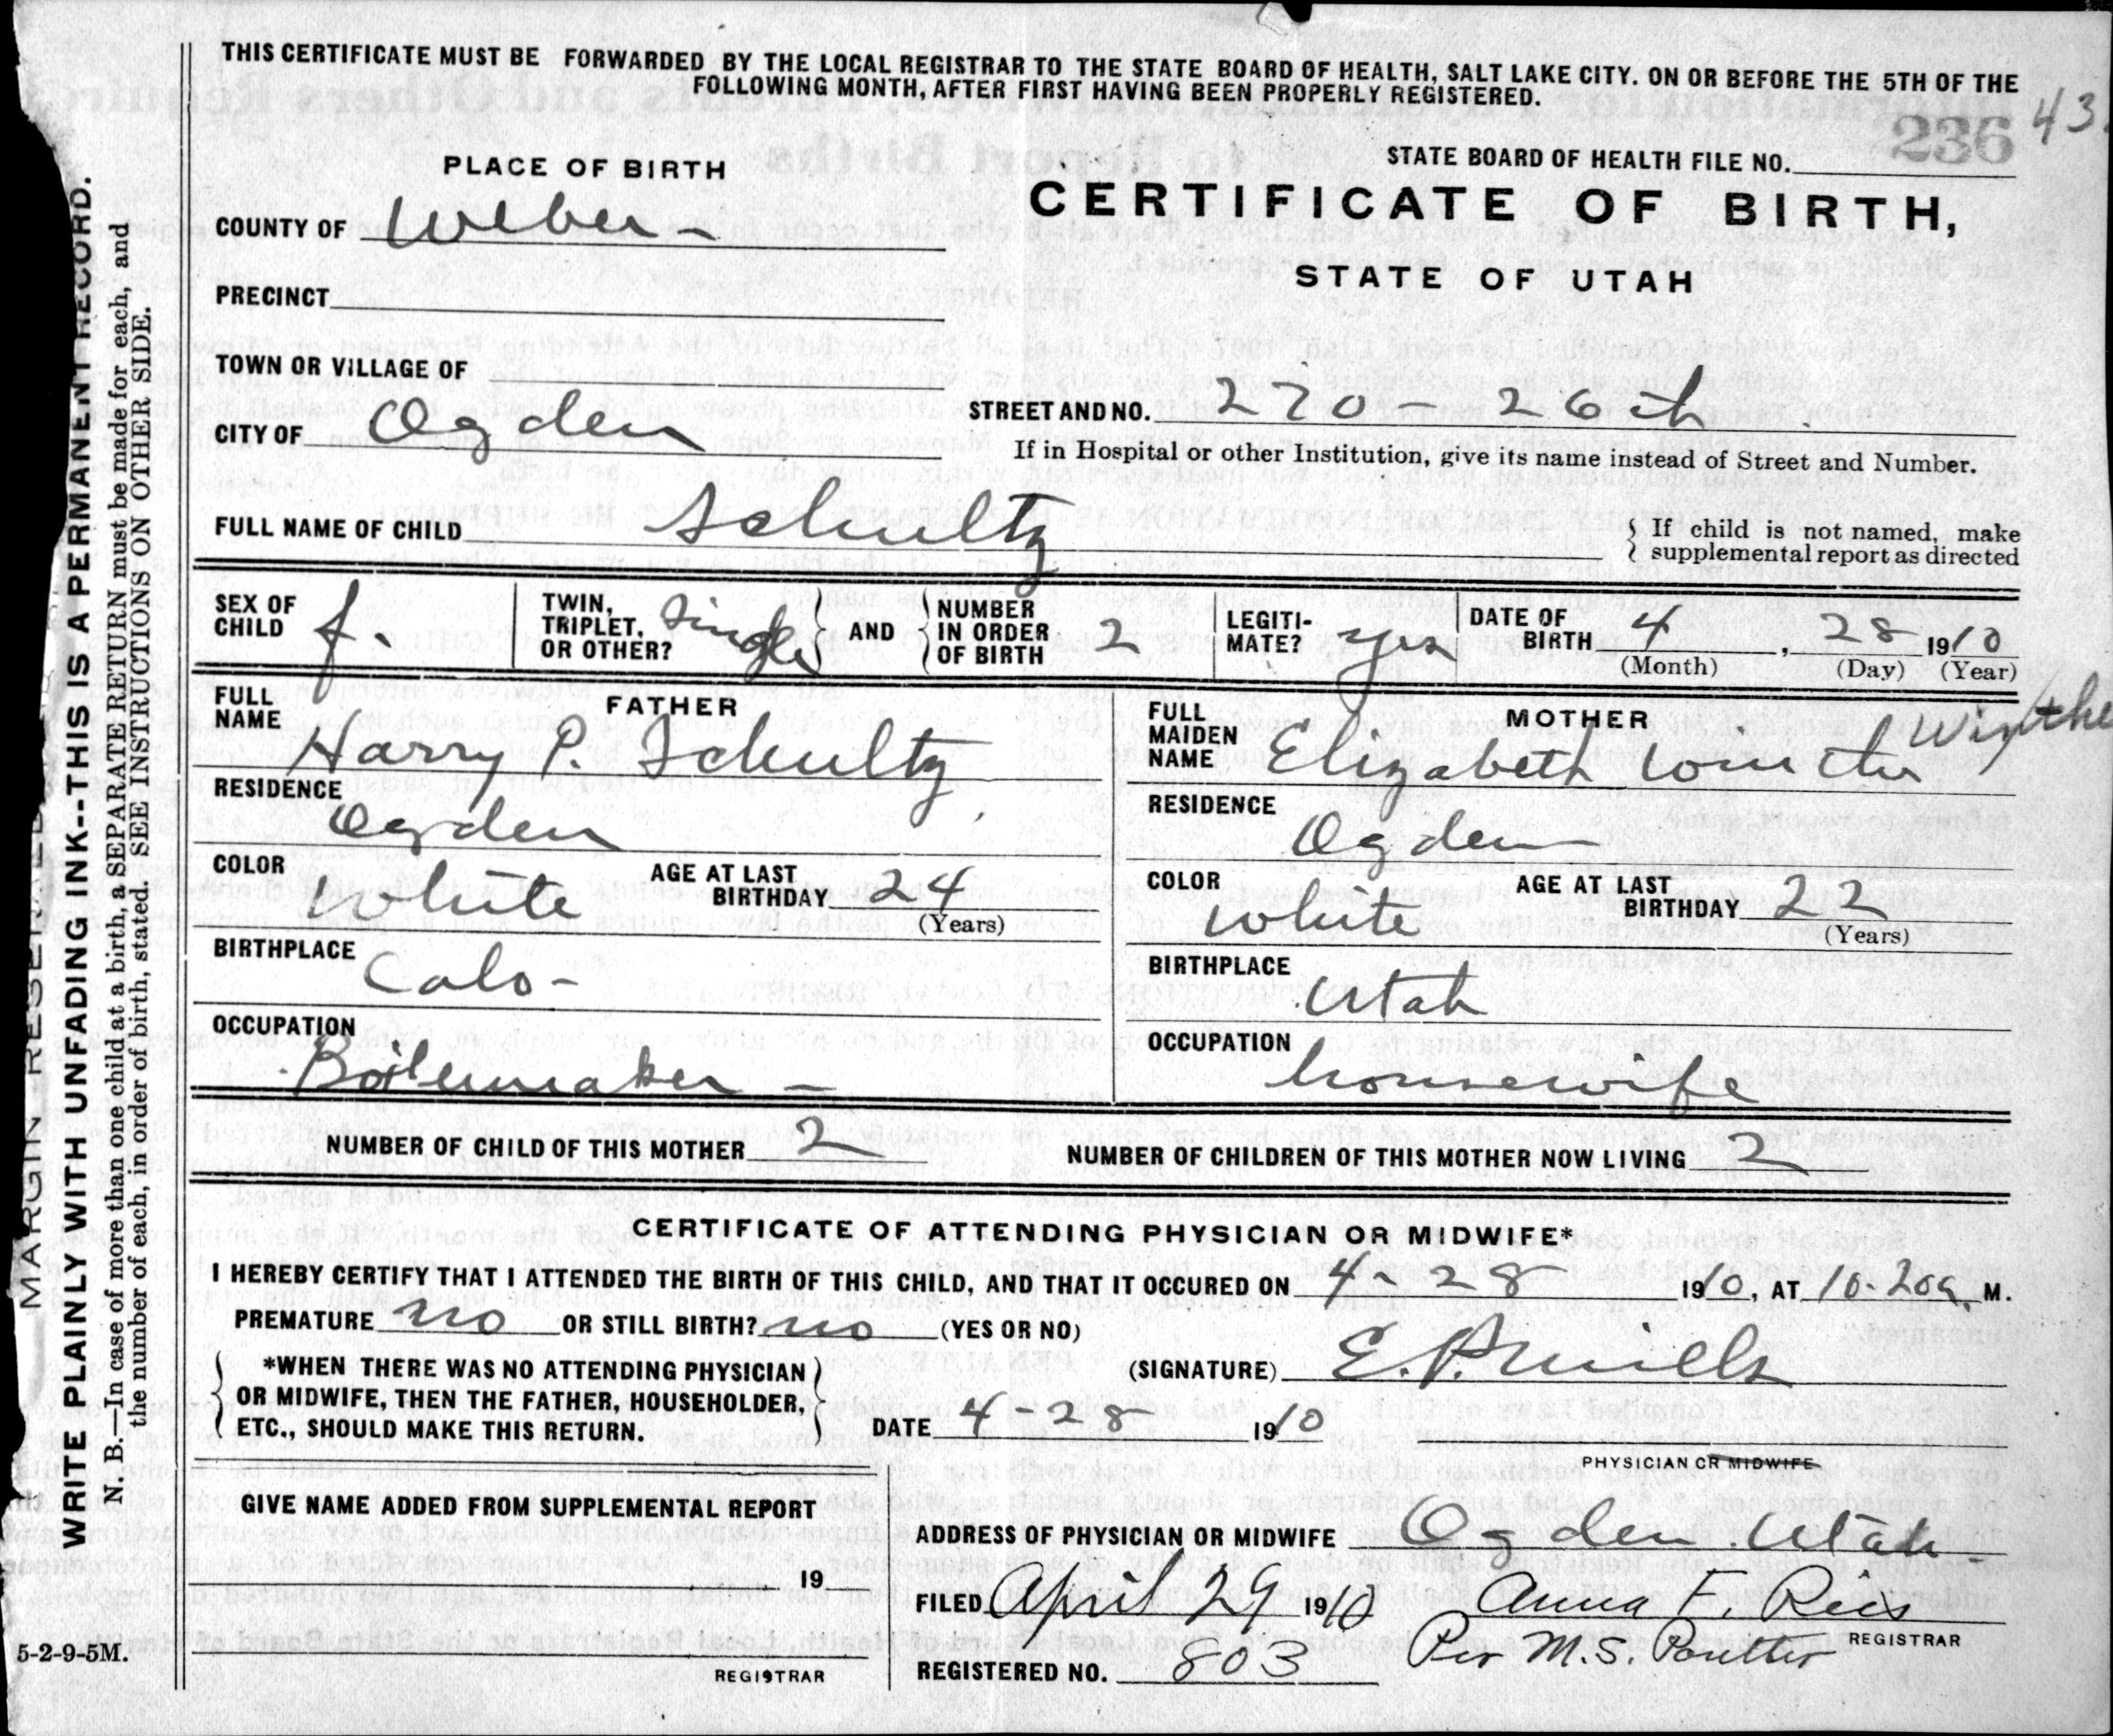 THIS CERTIFICATE MUST BE FORWARDED BY THE LOCAL REGISTRAR TO THE STATE BOARD OF HEALTH, SALT LAKE CITY. ON OR BEFORE THE 5TH OF THE
FOLLOWING MONTH, AFTER FIRST HAVING BEEN PROPERLY REGISTERED.
43.
236
STATE BOARD OF HEALTH FILE NO.
PLACE OF BIRTH
CERTIFICATE OF BIRTH,
STATE OF UTAH
COUNTY OF Weber -
PRECINCT
TOWN OR VILLAGE OF
CITY OF Ogden
STREET AND NO. 270 - 26th
If in Hospital or other Institution, give its name instead of Street and Number.
FULL NAME OF CHILD Schultz
{ If child is not named, make
supplemental report as directed
SEX OF CHILD f.
TWIN, TRIPLET, OR OTHER? Single
AND
NUMBER IN ORDER OF BIRTH 2
LEGITI-MATE? yes
DATE OF BIRTH 4, 28 1910
(Month) (Day) (Year)
FATHER
FULL NAME Harry P. Schultz
RESIDENCE Ogden
COLOR White
AGE AT LAST BIRTHDAY 24
(Years)
BIRTHPLACE Colo -
OCCUPATION Boilermaker -
MOTHER
FULL MAIDEN NAME Elizabeth Winther
RESIDENCE Ogden
COLOR White
AGE AT LAST BIRTHDAY 22
(Years)
BIRTHPLACE Utah
OCCUPATION housewife
NUMBER OF CHILD OF THIS MOTHER 2
NUMBER OF CHILDREN OF THIS MOTHER NOW LIVING 2
CERTIFICATE OF ATTENDING PHYSICIAN OR MIDWIFE*
I HEREBY CERTIFY THAT I ATTENDED THE BIRTH OF THIS CHILD, AND THAT IT OCCURED ON 4 - 28 1910, AT 10-20a. M.
PREMATURE no OR STILL BIRTH? no (YES OR NO)
*WHEN THERE WAS NO ATTENDING PHYSICIAN
OR MIDWIFE, THEN THE FATHER, HOUSEHOLDER,
ETC., SHOULD MAKE THIS RETURN.
(SIGNATURE) E. P. Mills
DATE 4 - 28 1910
PHYSICIAN OR MIDWIFE
GIVE NAME ADDED FROM SUPPLEMENTAL REPORT
19
REGISTRAR
ADDRESS OF PHYSICIAN OR MIDWIFE Ogden Utah -
FILED April 29 1910 Anna F. Reis
REGISTRAR
Per M.S. Poulter
REGISTERED NO. 803
5-2-9-5M.
MARGIN RESERVED
WRITE PLAINLY WITH UNFADING INK--THIS IS A PERMANENT RECORD.
N. B.—In case of more than one child at a birth, a SEPARATE RETURN must be made for each, and
the number of each, in order of birth, stated. SEE INSTRUCTIONS ON OTHER SIDE.